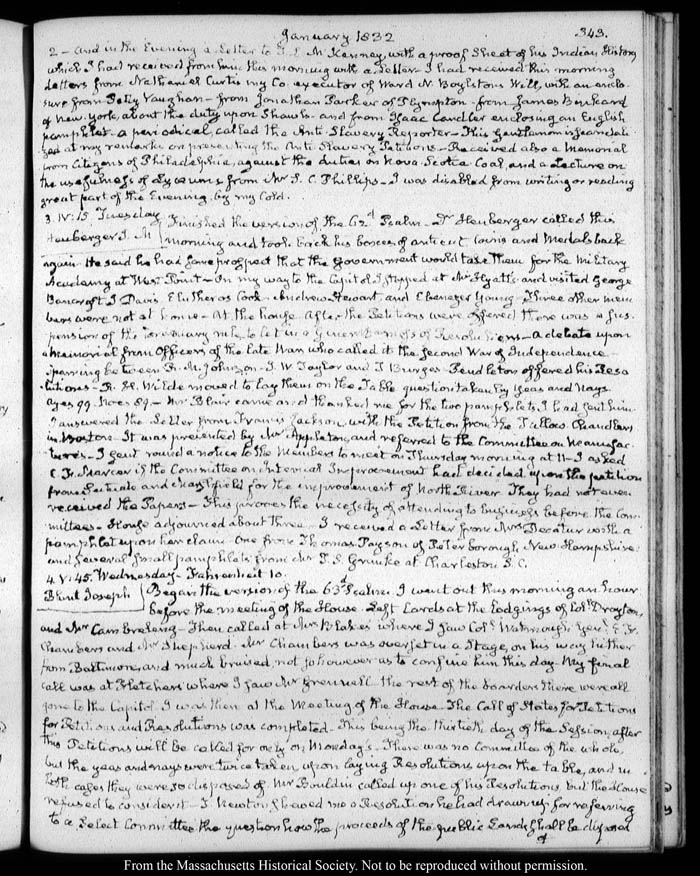 January 1832 343.
2 - and in the Evening a Letter to T. L. McKenney, with a proof Sheet of his Indian History
which I had received from him this morning with a Letter - I had received this morning
Letters from Nathaniel Curtis my Co-executor of Ward N. Boylston's Will, with an enclo-
sure from Petty Vaughan - from Jonathan Parker of Plympton - from James
of New York, about the duty upon Shawls - and from Isaac Candler enclosing an English
pamphlet - a periodical, called the Anti Slavery Reporter - This gentleman is scandali-
zed at my remarks on presenting the Anti Slavery Petitions - Received also a Memorial
from Citizens of Philadelphia, against the duties on Nova-Scotia Coal, and a Lecture on
the usefulness of Lyceums from Mr S. C. Phillips - I was disabled from writing or reading
great part of the Evening by my Cold.
3. IV:15. Tuesday Finished the version of the 62d Psalm - Dr Heuberger called this
Heuberger I. M morning and took back his boxes of antient Coins and Medals back
again - He said he had some prospect that the Government would take them for the Military
Academy at West Point - On my way to the Capitol I stopped at Mr Hyatt's and visited George
Bancroft J Davis Elutheros Cook - Andrew Stewart and Ebenezer Young - Three other mem-
bers were not at home - At the house after the Petitions were offered there was a sus-
pension of the rule, to let in a of Resolutions - a debate upon
a Memorial from Officers of the late War who called it the second War of Independence -
sparring between R. M. Johnson - J. W. Taylor and T Burges - Pendleton offered his Reso-
lutions - R. H. Wilde moved to lay them on the Table question taken by Yeas and Nays
ayes 99. Noes 89 - Mr Blair came and thanked me for the two pamphlets I had sent him
I answered the Letter from Francis Jackson, with the Petition from the Tallow Chandlers
in Boston - It was presented by Mr Appleton, and referred to the Committee on Manufac-
tures - I sent round a notice to the Members to meet on Thursday morning at 11 - I asked
C. F. Mercer if the Committee on internal Improvement had decided upon the petition
from Scituate and Marshfield for the improvement of North River They had not even
received the Papers - This proves the necessity of attending to business before the Com-
mittees - House adjourned about three - I received a Letter from Mrs Decatur with a
pamphlet upon her claim - One from Thomas Payson of Peterborough, New Hampshire
and several small pamphlets from Mr T. S. Grimke at Charleston S. C.
4. V:45. Wednesday - Fahrenheit 10.
Blunt Joseph Began the version of the 63d Psalm. I went out this morning an hour
before the meeting of the House - Left Cards at the Lodgings of Col. Drayton,
and Mr Cambreleng - Then called at Mr Blake's where I saw Col. Watmough, G. F.
Chambers and Mr Shepherd - Mr Chambers was overset in a Stage, on his way hither
from Baltimore, and much bruised, not so however as to confine him this day - My final
call was at Fletchers where I saw Mr Grennell the rest of the boarders there were all
gone to the Capitol. I was then at the Meeting of the House - The Call of States for Petitions
for Petitions and Resolutions was completed - This being the thirtieth day of the Session, after
this Petitions will be called for only on Mondays - There was no Committee of the whole,
but the yeas and nays were twice taken, upon laying Resolutions upon the table, and in
both cases they were so disposed of. Mr Bouldin called up one of his Resolutions, but the House
refused to consider it - T. Newton shewed me a Resolution he had drawn up for referring
to a Select Committee, the question how the proceeds of the public Lands shall be disposed
of
From the Massachusetts Historical Society. Not to be reproduced without permission.